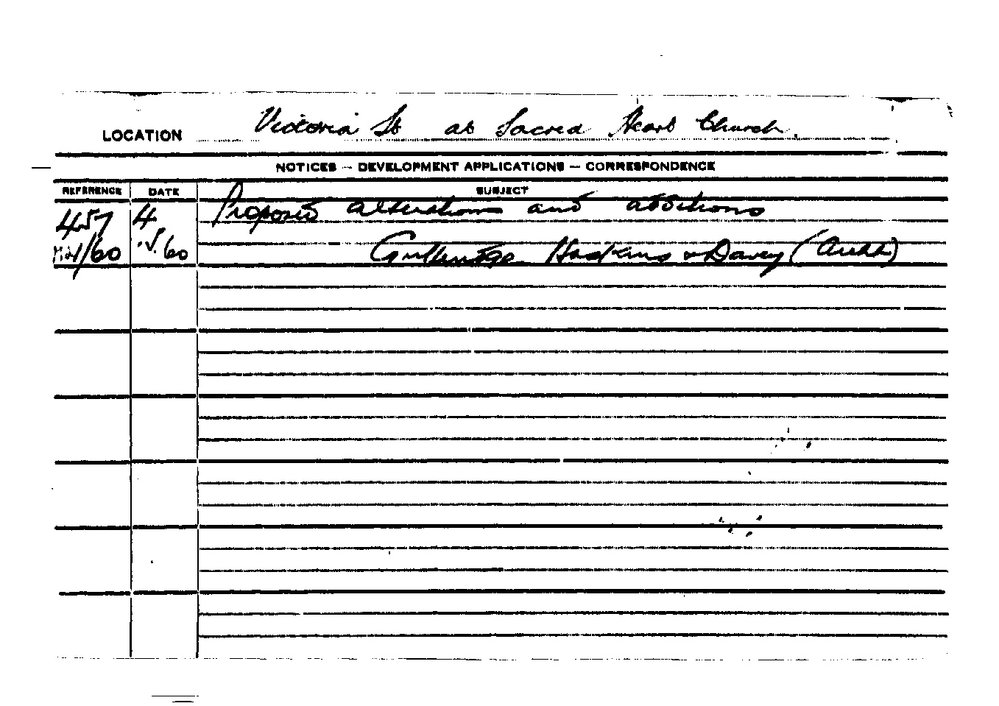 LOCATION Victoria St at Sacred Heart Church.
NOTICES — DEVELOPMENT APPLICATIONS — CORRESPONDENCE
REFERENCE DATE SUBJECT
457 4 Proposed alterations and additions
/60 .5.60 Hoskins & Davey (Archt)